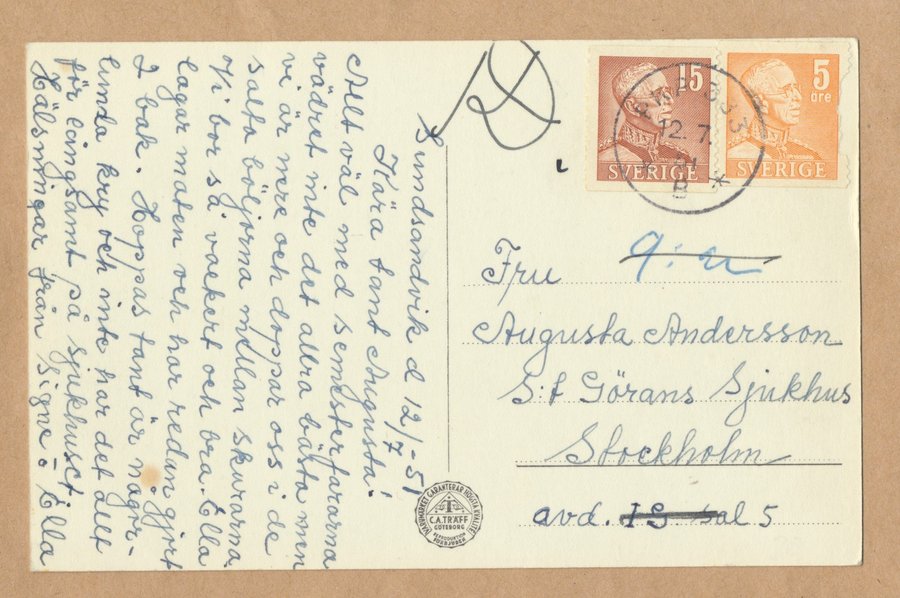 Sundsandvik d 12/7 -51
Kära tant Augusta!
Allt väl med semesterfararna
vädret inte det allra bästa men
vi är nere och doppar oss i de
salta böljorna mellan skurarna.
Vi bor så vackert och bra. Ella
lagar maten och har redan gjort
1 bak. Hoppas tant är någor-
lunda kry och inte har det allt
för långsamt på sjukhuset.
Hälsningar från Signe o Ella
15
SVERIGE
5
öre
SVERIGE
12.7.
51
B
Fru
Augusta Andersson
S:t Görans Sjukhus
Stockholm
avd. sal 5
VARUMÄRKET GARANTERAR HÖGSTA KVALITÉ
T
C.A. TRÄFF
GÖTEBORG
REPRODUKTION
FÖRBJUDEN